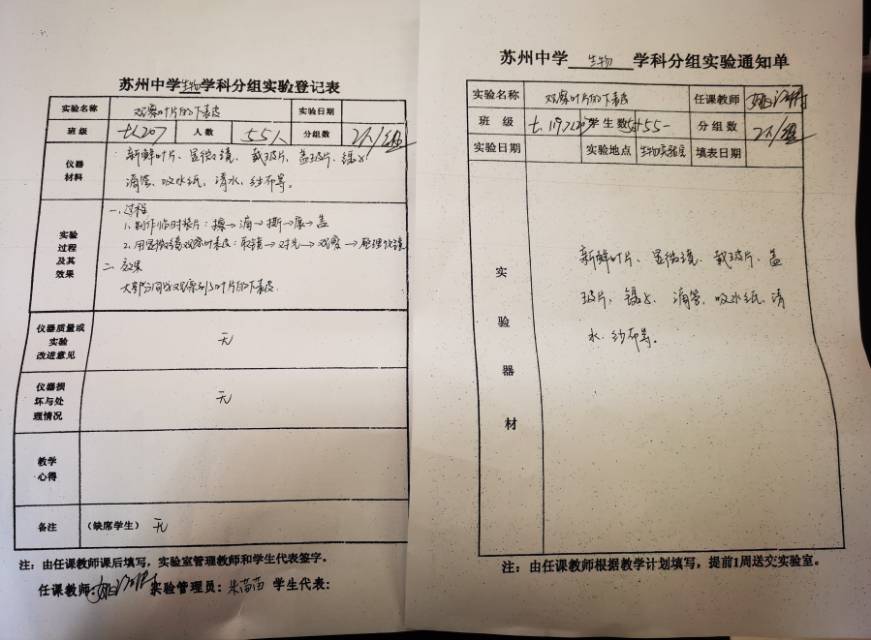 苏州中学生物学科分组实验登记表
实验名称 观察叶片的下表皮 实验日期
班级 人数 55人 分组数 2人/组
仪器材料 新鲜叶片、显微镜、载玻片、盖玻片、镊子
滴管、吸水纸、清水、纱布等。
实验过程及其效果
一、过程
1. 制作临时装片：擦→滴→撕→展→盖
2. 用显微镜观察叶表皮：取镜→对光→观察→整理仪镜
二、效果
大部分同学观察到了叶片的下表皮.
仪器质量或实验改进意见 无
仪器损坏与处理情况 无
教学心得
备注 （缺席学生） 无
注：由任课教师课后填写，实验室管理教师和学生代表签字。
任课教师: 实验管理员：朱苗苗 学生代表：
苏州中学 生物 学科分组实验通知单
实验名称 观察叶片的下表皮 任课教师
班级 学生数 分组数 2人/组
实验日期 实验地点 生物实验室 填表日期
实验器材
新鲜叶片、显微镜、载玻片、盖
玻片、镊子、滴管、吸水纸、清
水、纱布等。
注：由任课教师根据教学计划填写，提前1周送交实验室。